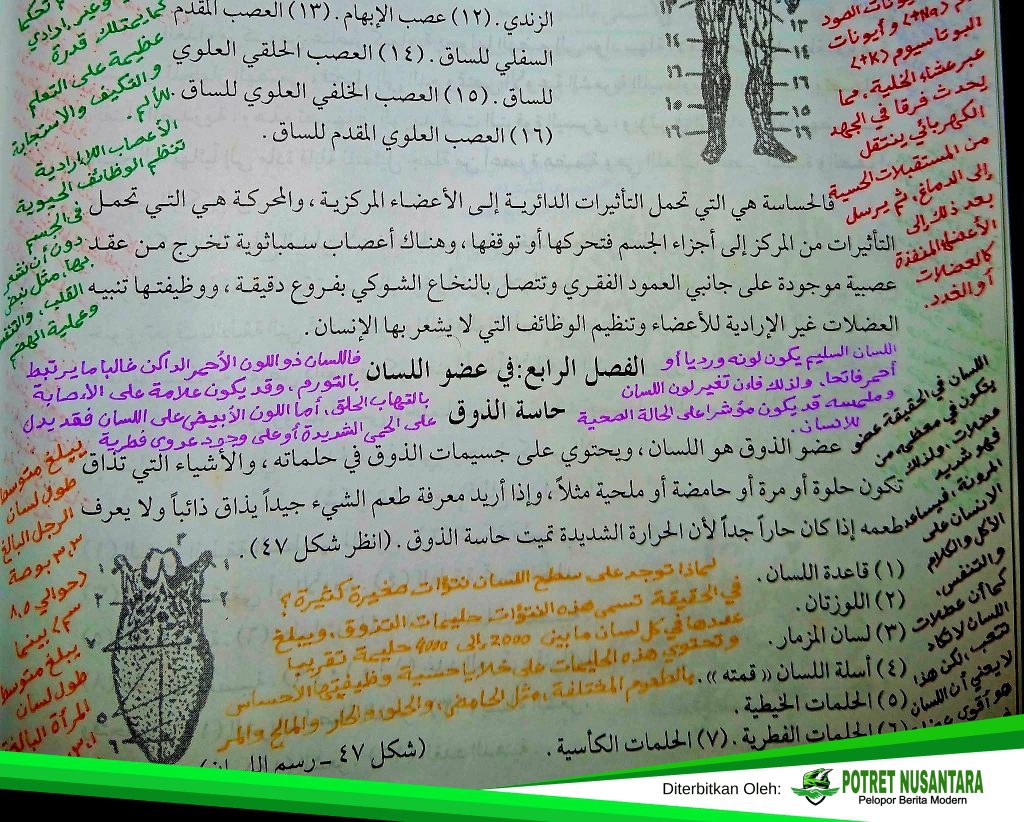 الزندي . (١٢) عصب الإبهام . (١٣) العصب المقدم
السفلي للساق . (١٤) العصب الحلقي العلوي
للساق . (١٥) العصب الخلفي العلوي للساق .
(١٦) العصب العلوي المقدم للساق .
١٣
١٤
١٦
١٥
١٦
١٣
١٤
١٦
١٥
١٦
وغير إرادي
كما يمتلك قدرة
عظيمة على التعلم
والتكيف والاستجابة
للألم .
الأعصاب اللاإرادية
تنظم الوظائف الحيوية
في الجسم
دون أن نشعر
بها، مثل نبض
القلب، والتنفس
وعملية الهضم
(Na+) وأيونات
البوتاسيوم (K+)
عبر عشاء الخلية، مما
يحدث فرقا في الجهد
الكهربائي ينتقل
من المستقبلات الحسية
إلى الدماغ، ثم يرسل
بعد ذلك إلى
الأعضاء المنفذة
كالعضلات
أو الغدد.
فالحساسة هي التي تحمل التأثيرات الدائرية إلى الأعضاء المركزية ، والمحركة هي التي تحمل
التأثيرات من المركز إلى أجزاء الجسم فتحركها أو توقفها ، وهناك أعصاب سمباثوية تخرج من عقد
عصبية موجودة على جانبي العمود الفقري وتتصل بالنخاع الشوكي بفروع دقيقة ، ووظيفتها تنبيه
العضلات غير الإرادية للأعضاء وتنظيم الوظائف التي لا يشعر بها الإنسان .
الفصل الرابع: في عضو اللسان
حاسة الذوق
اللسان السليم يكون لونه ورديا أو
أحمر فاتحا، ولذلك فإن تغير لون اللسان
وملمسه قد يكون مؤشرا على الحالة الصحية
للإنسان.
فاللسان ذو اللون الأحمر الداكن غالبا ما يرتبط
بالتورم، وقد يكون علامة على الإصابة
بالتهاب الحلق، أما اللون الأبيض على اللسان فقد يدل
على الحمى الشديدة أو على وجود عدوى فطرية
عضو الذوق هو اللسان ، ويحتوي على جسيمات الذوق في حلماته ، والأشياء التي تذاق
تكون حلوة أو مرة أو حامضة أو ملحية مثلاً ، وإذا أريد معرفة طعم الشيء جيداً يذاق ذائباً ولا يعرف
طعمه إذا كان حاراً جداً لأن الحرارة الشديدة تميت حاسة الذوق . (انظر شكل ٤٧) .
اللسان في الحقيقة عضو
يتكون في معظمه من
عضلات، ولذلك
فهو شديد
المرونة، فيساعد
الإنسان على
الأكل والكلام
والتنفس،
كما أن عضلات
اللسان لا تكاد
تتعب، لكن هذا
لا يعني أن اللسان
هو أقوى
يبلغ متوسط
طول لسان
الرجل البالغ
٣،٣ بوصة
(حوالي ٨،٥
سم) بينما
يبلغ متوسط
طول لسان
المرأة البالغة
٣،١
لماذا توجد على سطح اللسان نتؤات صغيرة كثيرة؟
في الحقيقة تسمى هذه النتؤات حليمات التذوق، ويبلغ
عددها في كل لسان ما بين 2000 إلى 4000 حليمة تقريبا
وتحتوي هذه الحليمات على خلايا حسية وظيفتها الإحساس
بالطعوم المختلفة، مثل الحامض، والحلو، والحار، والمالح والمر
(١) قاعدة اللسان .
(٢) اللوزتان .
(٣) لسان المزمار .
(٤) أسلة اللسان « قمته » .
(٥) الحلمات الخيطية .
(٦) الحلمات الفطرية . (٧) الحلمات الكأسية .
(شكل ٤٧ - رسم اللسان)
Diterbitkan Oleh:
POTRET NUSANTARA
Pelopor Berita Modern